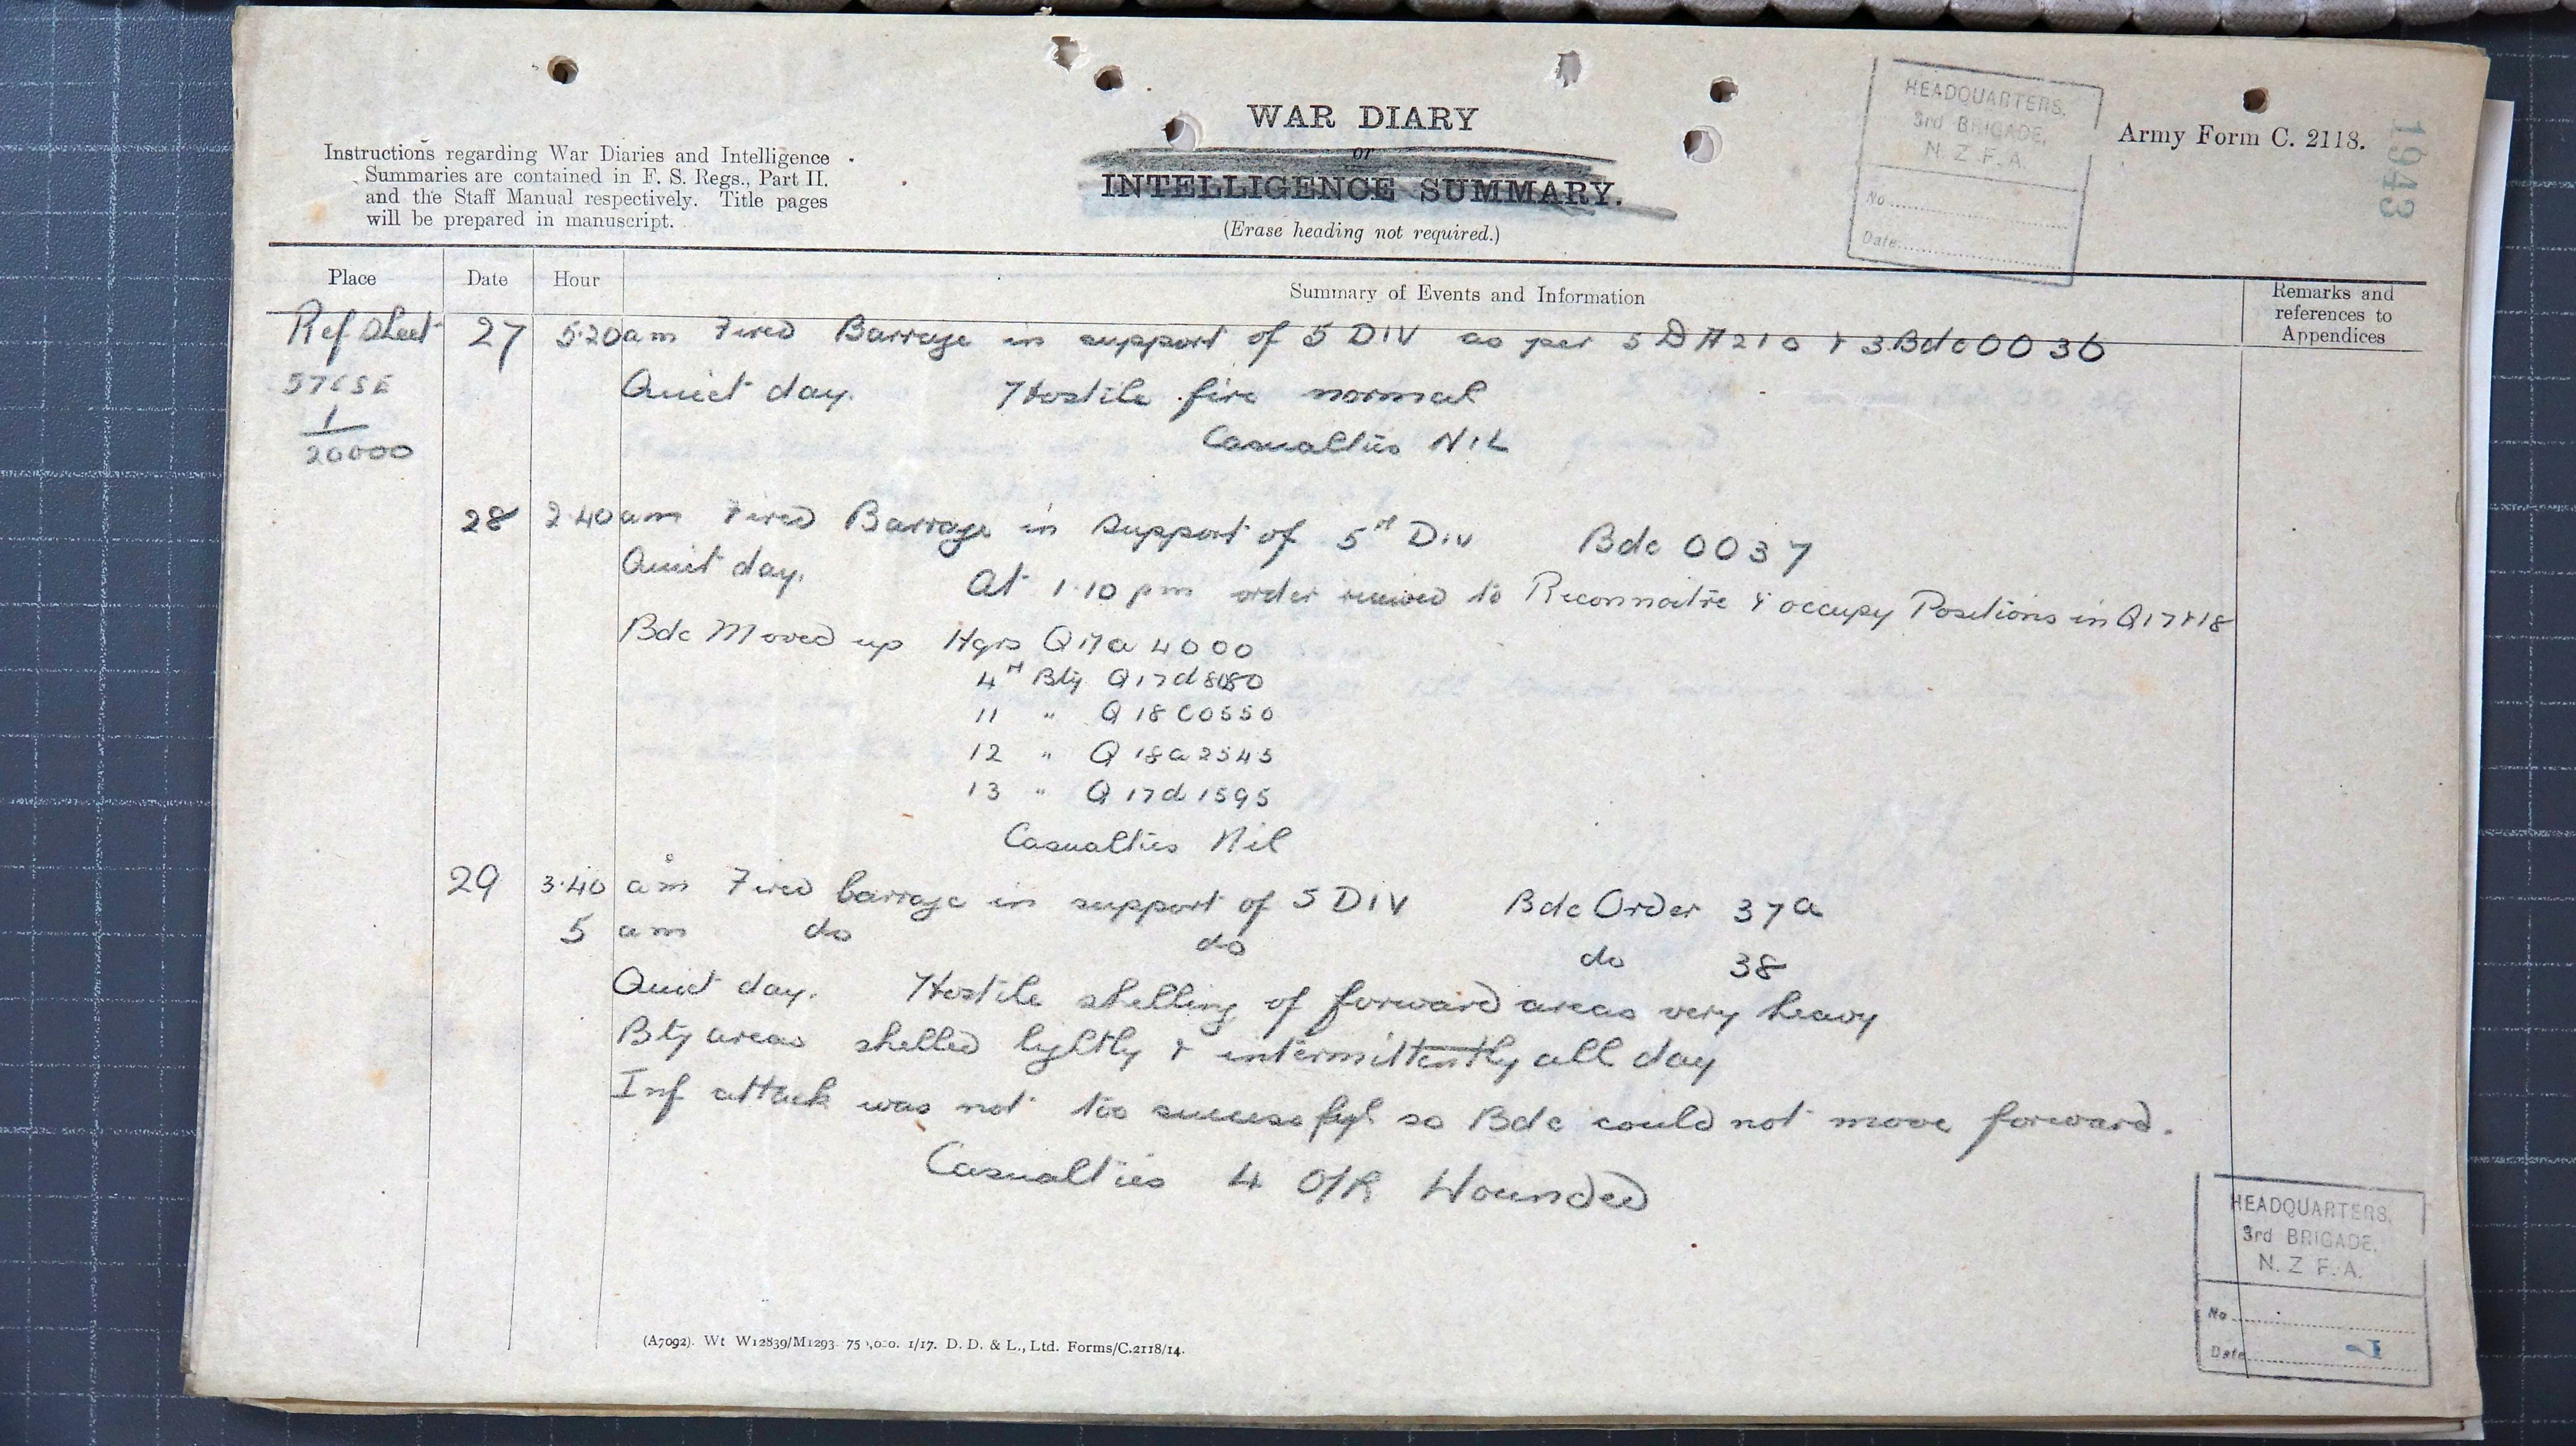 WAR DIARY
or
INTELLIGENCE SUMMARY.
(Erase heading not required.)
Instructions regarding War Diaries and Intelligence
Summaries are contained in F. S. Regs., Part II.
and the Staff Manual respectively. Title pages
will be prepared in manuscript.
HEADQUARTERS,
3rd BRIGADE,
N. Z. F. A.
No
Date
Army Form C. 2118.
1943
Place Date Hour Summary of Events and Information Remarks and references to Appendices
Ref Sheet 27 5.20 am Fired Barrage in support of 5 DIV as per 5 DA 210 & 3 Bde OO 36
57CSE Quiet day. Hostile fire normal
1
20000 Casualties NIL
28 2.40 am Fired Barrage in support of 5th Div Bde OO 37
Quiet day. At 1.10 pm order received to Reconnoitre & occupy Positions in Q17&18
Bde Moved up Hqrs Q17a 4000
4th Bty Q17d
11 " Q18C0550
12 " Q18a2545
13 " Q17d1595
Casualties Nil
29 3.40 am Fired barrage in support of 5 DIV Bde Order 37a
5 am do do do 38
Quiet day. Hostile shelling of forward areas very heavy
Bty areas shelled lightly & intermittently all day
Inf attack was not too successful so Bde could not move forward.
Casualties 4 O/R Wounded
HEADQUARTERS,
3rd BRIGADE,
N. Z. F. A.
No
Date
(A7092). Wt W12839/M1293 75,000. 1/17. D. D. & L., Ltd. Forms/C.2118/14.